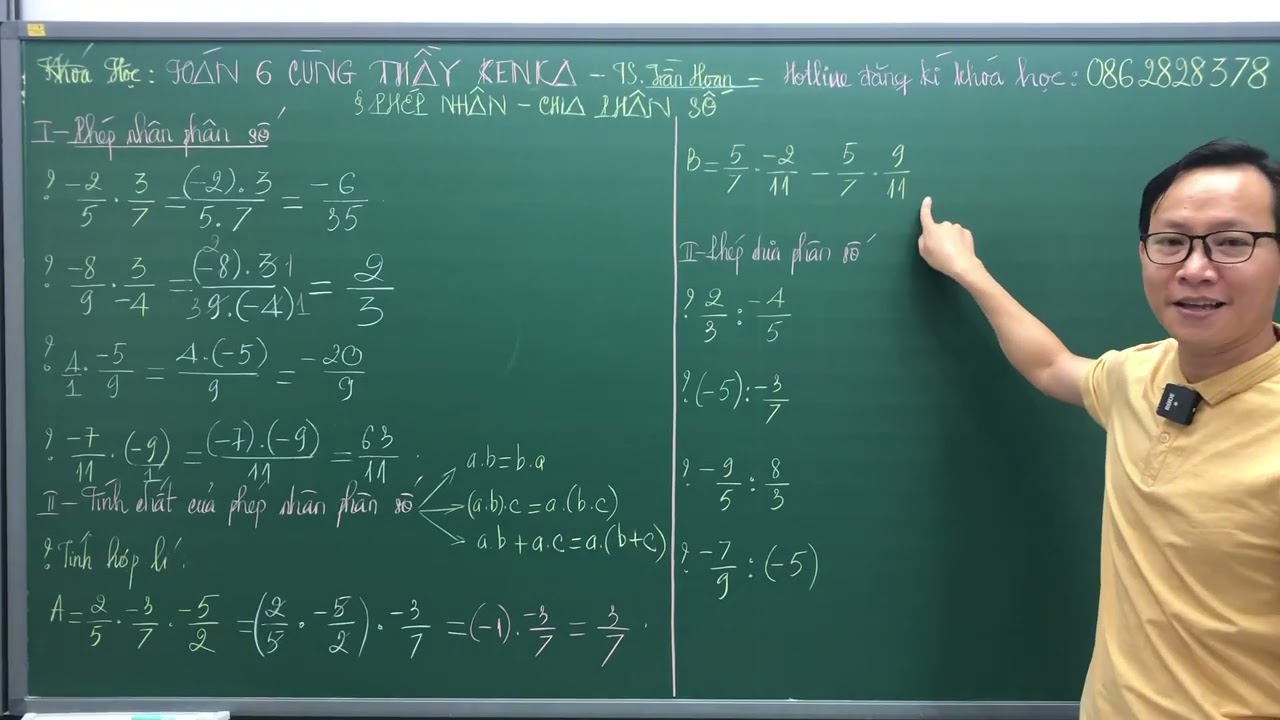 Khoá Học: TOÁN 6 CÙNG THẦY KENKA - TS. Trần Hoan - Hotline đăng kí khoá học: 0862828378
§ PHÉP NHÂN - CHIA PHÂN SỐ
I - Phép nhân phân số
? -2/5 . 3/7 = (-2).3/5.7 = -6/35
? -8/9 . 3/-4 = (-8).3/9.(-4) = 2/3
? 4/1 . -5/9 = 4.(-5)/9 = -20/9
? -7/11 . (-9)/1 = (-7).(-9)/11 = 63/11
II - Tính chất của phép nhân phân số
a.b=b.a
(a.b).c=a.(b.c)
a.b+a.c=a.(b+c)
? Tính hợp lí.
A = 2/5 . -3/7 . -5/2 = (2/5 . -5/2) . -3/7 = (-1) . -3/7 = 3/7
B = 5/7 . -2/11 - 5/7 . 9/11
II - Phép chia phân số
? 2/3 : -4/5
? (-5) : -3/7
? -9/5 : 8/3
? -7/9 : (-5)